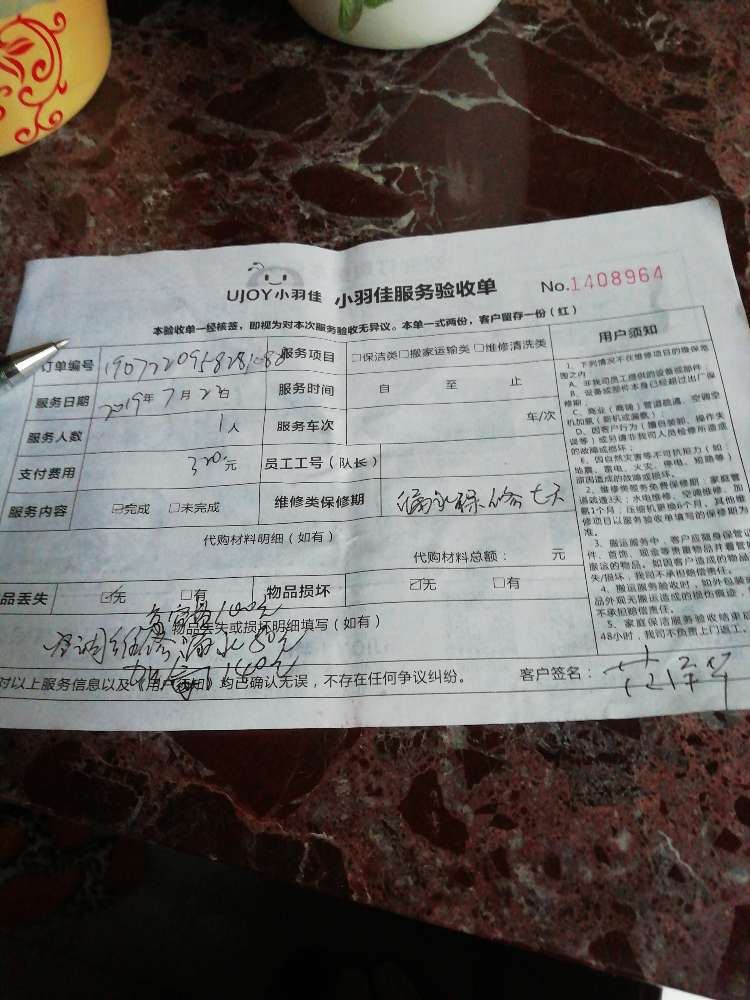 UJOY小羽佳 小羽佳服务验收单 No.1408964
本验收单一经核签，即视为对本次服务验收无异议。本单一式两份，客户留存一份（红）
订单编号 服务项目 □保洁类□搬家运输类□维修清洗类
服务日期 2019年7月22日 服务时间 自 至 止
服务人数 1人 服务车次 车/次
支付费用 320元 员工工号（队长）
服务内容 ☑完成 □未完成 维修类保修期 漏水保修七天
代购材料明细（如有）
代购材料总额： 元
品丢失 ☑无 □有 物品损坏 ☑无 □有
物品丢失或损坏明细填写（如有）
空调维修漏水80元
对以上服务信息以及《用户须知》均已确认无误，不存在任何争议纠纷。 客户签名：
用户须知
1、下列情况不在维修项目的维保范
围之内：
A、非我司员工提供的设备或部件
B、设备或部件本身已经超过出厂保
修期；
C、商业（商铺）管道疏通、空调空
机加氟（新机或漏氟）；
D、因客户行为（擅自装卸、操作失
误等）或另请非我司人员检修所造成
的故障或损坏；
E、因自然灾害等不可抗拒力（如
地震、雷电、火灾、停电、短路等）
造因造成的故障或损坏。
2、维修类服务免费保修期：家庭管
道疏通3天；水电维修、空调维修、加
氟1个月；压缩机更换6个月，其他维
修项目以服务验收单填写的保修期为
准。
3、搬运服务中，客户应随身保管证
件、首饰、现金等贵重物品并看管好
搬运的物品。如因客户造成的物品
失/损坏，我司不承担赔偿责任。
4、搬运服务验收时，如外包装
品外观无搬运造成的损伤痕迹，
不承担赔偿责任。
5、家庭保洁服务验收结束后
48小时，我司不负责上门返工。